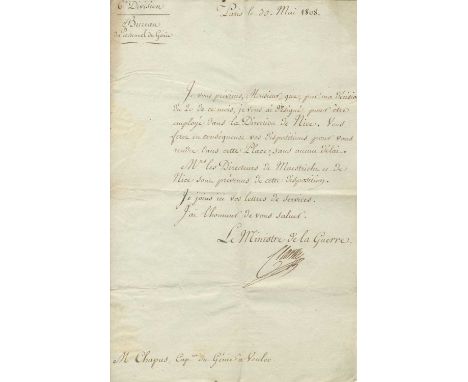 6e Division
Bureau
du Personnel du Génie
Paris le 30 Mai 1808.
Je vous préviens, Monsieur, que, par ma décision
du 20 de ce mois, je vous ai désigné, pour être
employé dans la Direction de Nice. Vous
ferez en conséquence vos dispositions pour vous
rendre dans cette Place, sans aucun délai.
Mrs les Directeurs de Maestricht et de
Nice sont prévenus de cette disposition.
Je joins ici vos lettres de services.
J'ai l'honneur de vous saluer.
Le Ministre de la Guerre.
M Chapus, Capne du Génie à Venloo